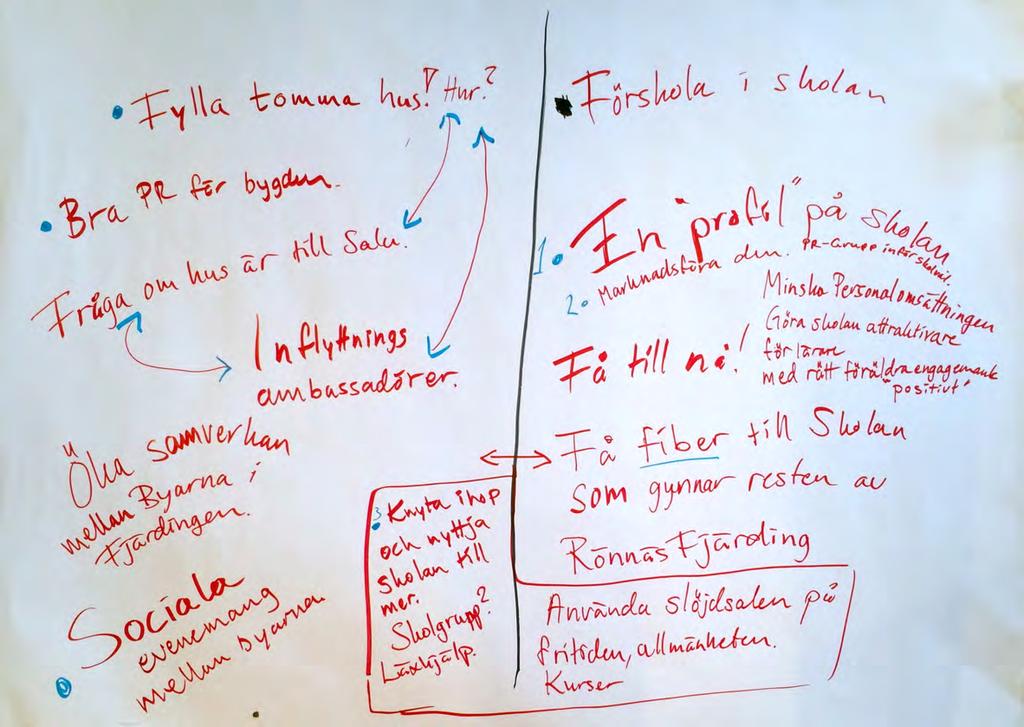 • Fylla tomma hus! Hur?
• Bra PR för bygden.
Fråga om hus är till Salu.
Inflyttnings
ambassadörer.
Öka samverkan
mellan Byarna i
Fjärdingen.
Sociala
evenemang
mellan byarna.
• Förskola i skolan
1. En "profil" på skolan
2. Marknadsföra den. PR-Grupp inför skolval.
Få till nå!
Minska Personalomsättningen
Göra skolan attraktivare
för lärare
med rätt föräldraengagemank
"positivt"
Få fiber till Skolan
som gynnar resten av
Rönnäs Fjärding
3. Knyta ihop
och nyttja
skolan till
mer.
Skolgrupp?
Läxhjälp.
Använda slöjdsalen på
fritiden, allmänheten.
Kurser